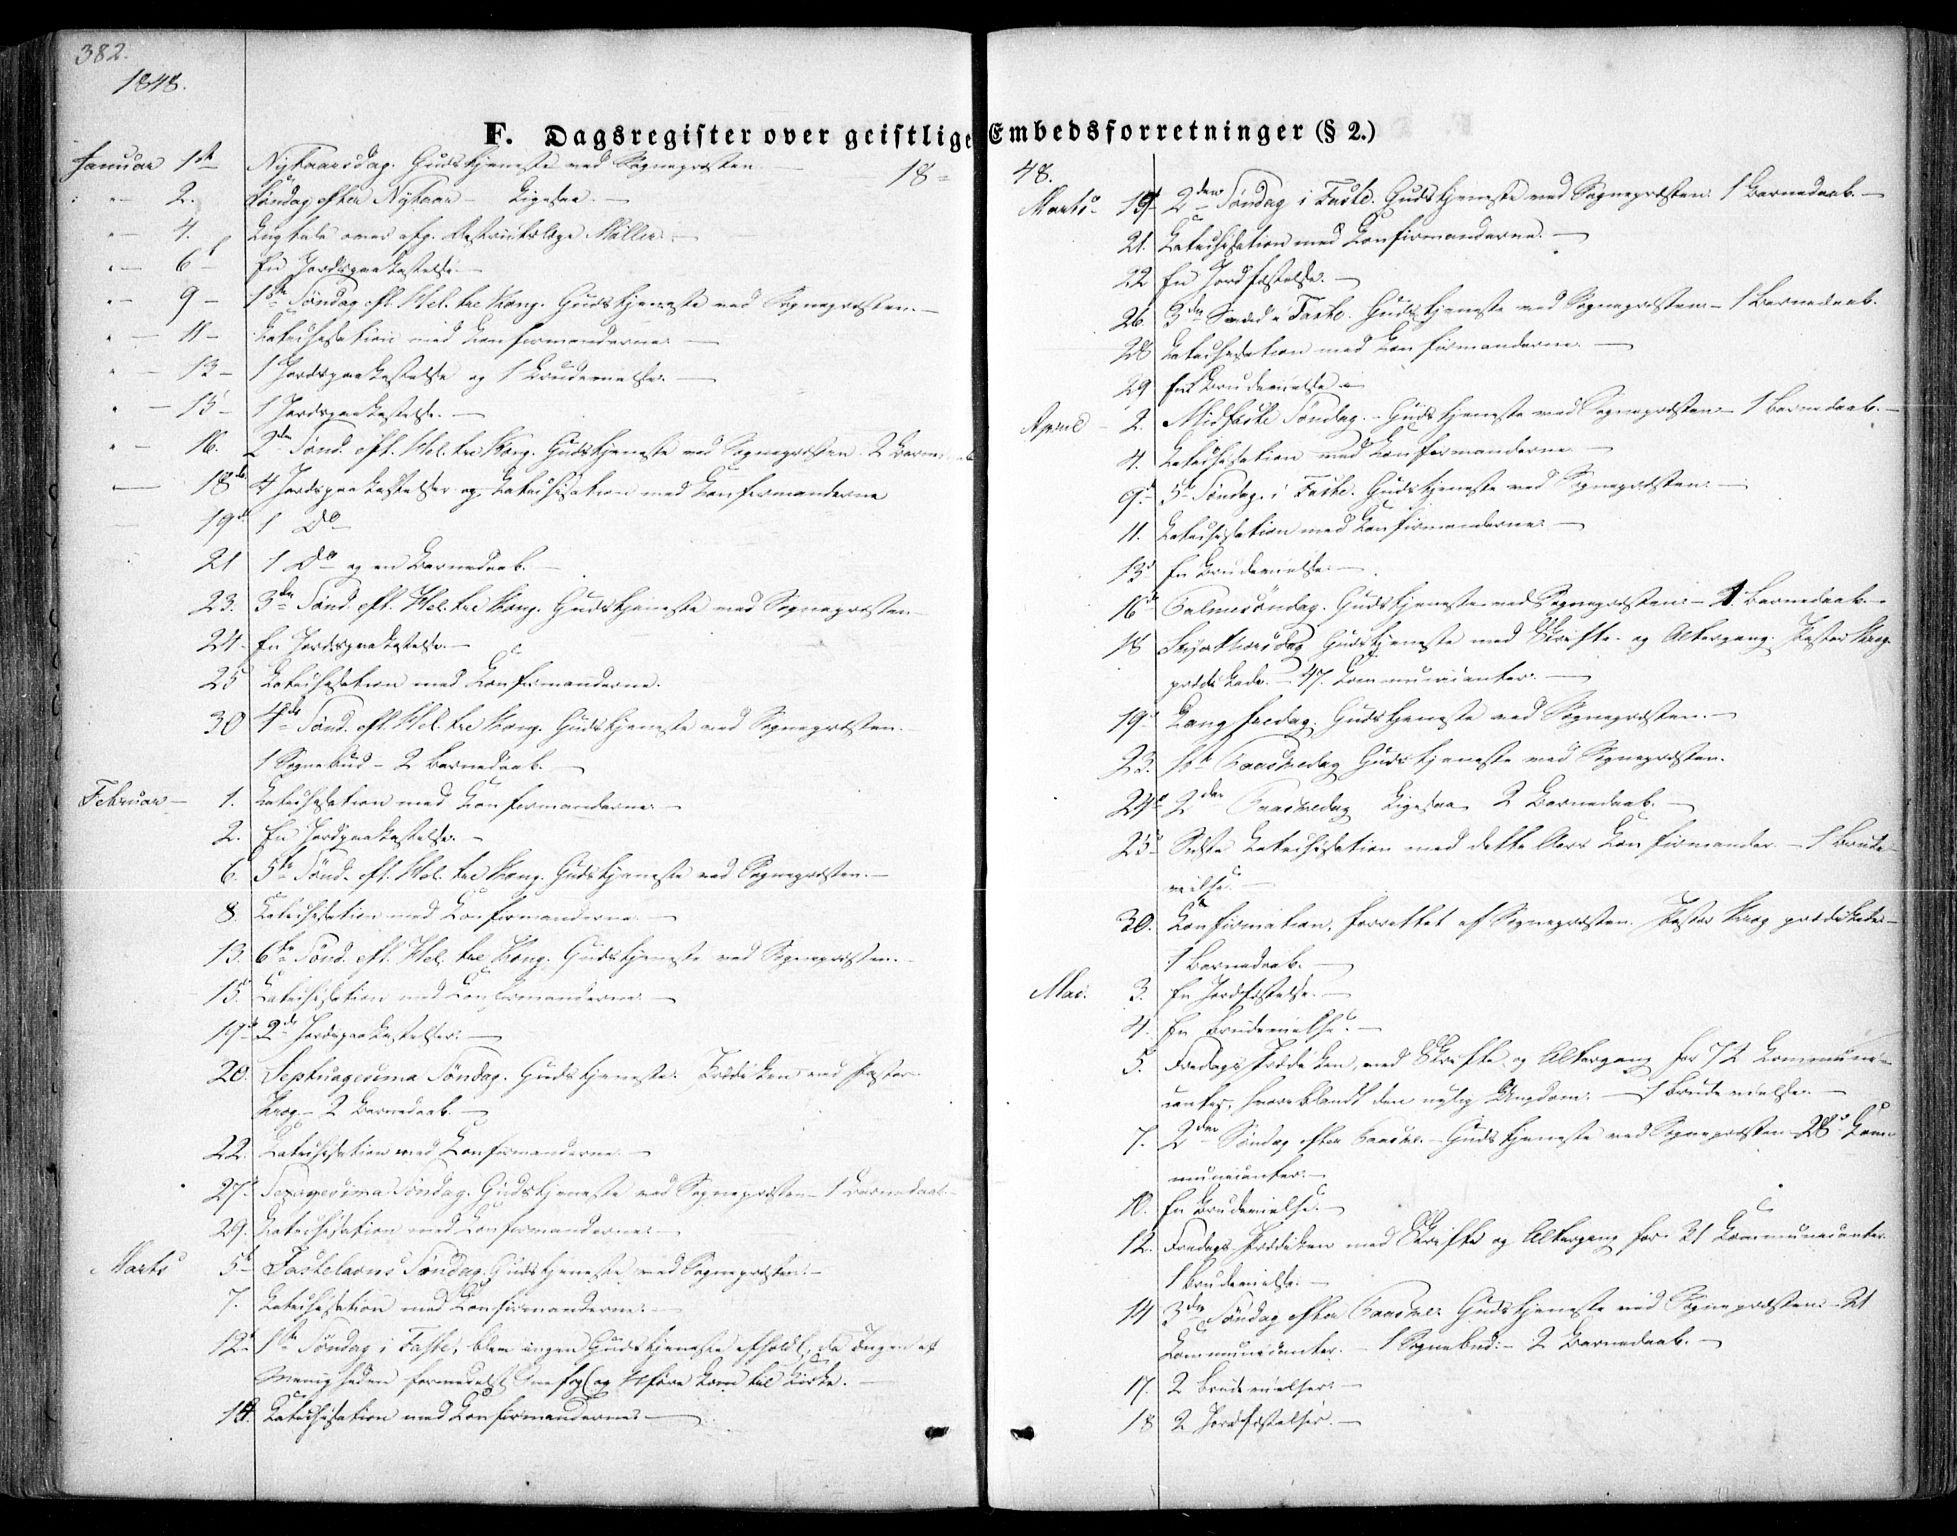 382.
1848.
F. Dagsregister over geistlige Embedsforretninger (§ 2.)
18 48.
Januar 1ste Nytaarsdag. Gudstjeneste ved Sognepræsten.
" 2. Søndag efter Nytaar – Ligesaa. –
" 4. Liigtale over afg. Districtslæge Møller. –
" 6 En Jordspaakastelse. –
" 9 – 1ste Søndag eft. Hel. tre Kong. Gudstjeneste ved Sognepræsten. –
" 11 – Catechisation med Confirmanderne. –
" 13 – 1 Jordspaakastelse og 1 Brudevielse. –
" 15 – 1 Jordspaakastelse. –
" 16. 2den Sønd. eft. Hel. tre Kong. Gudstjeneste ved Sognepræsten. 2 Barnedaab
18de 4 Jordspaakastelser og Catechisation med Confirmanderne
19de 1 Do
21 1 Do og en Barnedaab. –
23. 3die Sønd. eft. Hel. tre Kong. Gudstjeneste ved Sognepræsten. –
24. En Jordspaakastelse. –
25 Catechisation med Confirmanderne.
30 4de Sønd. eft. Hel. tre Kong. Gudstjeneste ved Sognepræsten. –
1 Sognebud – 2 Barnedaab. –
Februar – 1. Catechisation med Confirmanderne. –
2. En Jordpaakastelse. –
6. 5te Sønd. eft. Hel. tre Kong. Gudstjeneste ved Sognepræsten. –
8. Catechisation med Confirmanderne. –
13. 6te Sønd. eft. Hel. tre Kong. Gudstjeneste ved Sognepræsten. –
15. Catechisation med Confirmanderne. –
19de 2de Jordspaakastelser. –
20. Septuagesima Søndag. Gudstjeneste. Prædiken ved Pastor
Krog – 2 Barnedaab. –
22. Catechisation med Confirmanderne. –
27. Sexagesima Søndag. Gudstjeneste ved Sognepræsten – 1 Barnedaab –
29. Catechisation med Confirmanderne. –
Marts 5te Fastelavns Søndag. Gudstjeneste ved Sognepræsten. –
7. Catechisation med Confirmanderne. –
12. 1ste Søndag i Faste, blev ingen Gudstjeneste afholdt, da Ingen af
Menigheden formedelst Sneefog og Uføre kom til Kirke. –
14. Catechisation med Confirmanderne –
Marts 19de 2den Søndag i Faste. Gudstjeneste ved Sognepræsten. 1 Barnedaab. –
21. Catechisation med Confirmanderne. –
22 En Jordfæstelse. –
26. 3die Sønd. i Faste. Gudstjeneste ved Sognepræsten – 1 Barnedaab.
28 Catechisation med Confirmanderne. –
29. En Brudevielse –
April – 2. Midfaste Søndag. – Gudstjeneste ved Sognepræsten – 1 Barnedaab. –
4. Catechisation med Confirmanderne –
9. 5te Søndag i Faste. Gudstjeneste ved Sognepræsten. –
11. Catechisation med Confirmanderne. –
13. En Brudevielse. –
16 Palmesøndag. Gudstjeneste ved Sognepræsten. – 1 Barnedaab. –
18 Skjærthorsdag Gudstjeneste med Skrifte- og Altergang. Pastor Krog
prædikede. – 47 Communicanter. –
19 Langfredag. Gudstjeneste ved Sognepræsten. –
23. 1ste Paaskedag Gudstjeneste ved Sognepræsten.
24de 2den Paaskedag Ligesaa 2 Barnedaab. –
25 Sidste Catechisation med dette Aars Confirmander. – 1 Brude-
vielse. –
30. Confirmation, forrettet af Sognepræsten. Pastor Krog prædikede –
1 Barnedaab. –
Mai. 3. En Jordfæstelse. –
4. En Brudevielse. –
5. Fredags Prædiken, med Skrifte og Altergang for 72 Communi-
canter, hvoriblandt den nylig Ungdom. – 1 Brudevielse. –
7. 2den Søndag efter Paaske. – Gudstjeneste ved Sognepræsten – 28 Com-
municanter. –
10. En Brudevielse. –
12. Fredags Prædiken med Skrifte og Altergang for 31 Communicanter.
1 Brudevielse. –
14 3die Søndag efter Paaske. Gudstjeneste ved Sognepræsten – 21
Communicanter. – 1 Sognebud. – 2 Barnedaab. –
17. 2 Brudevielser. –
18 2 Jordfæstelser. –